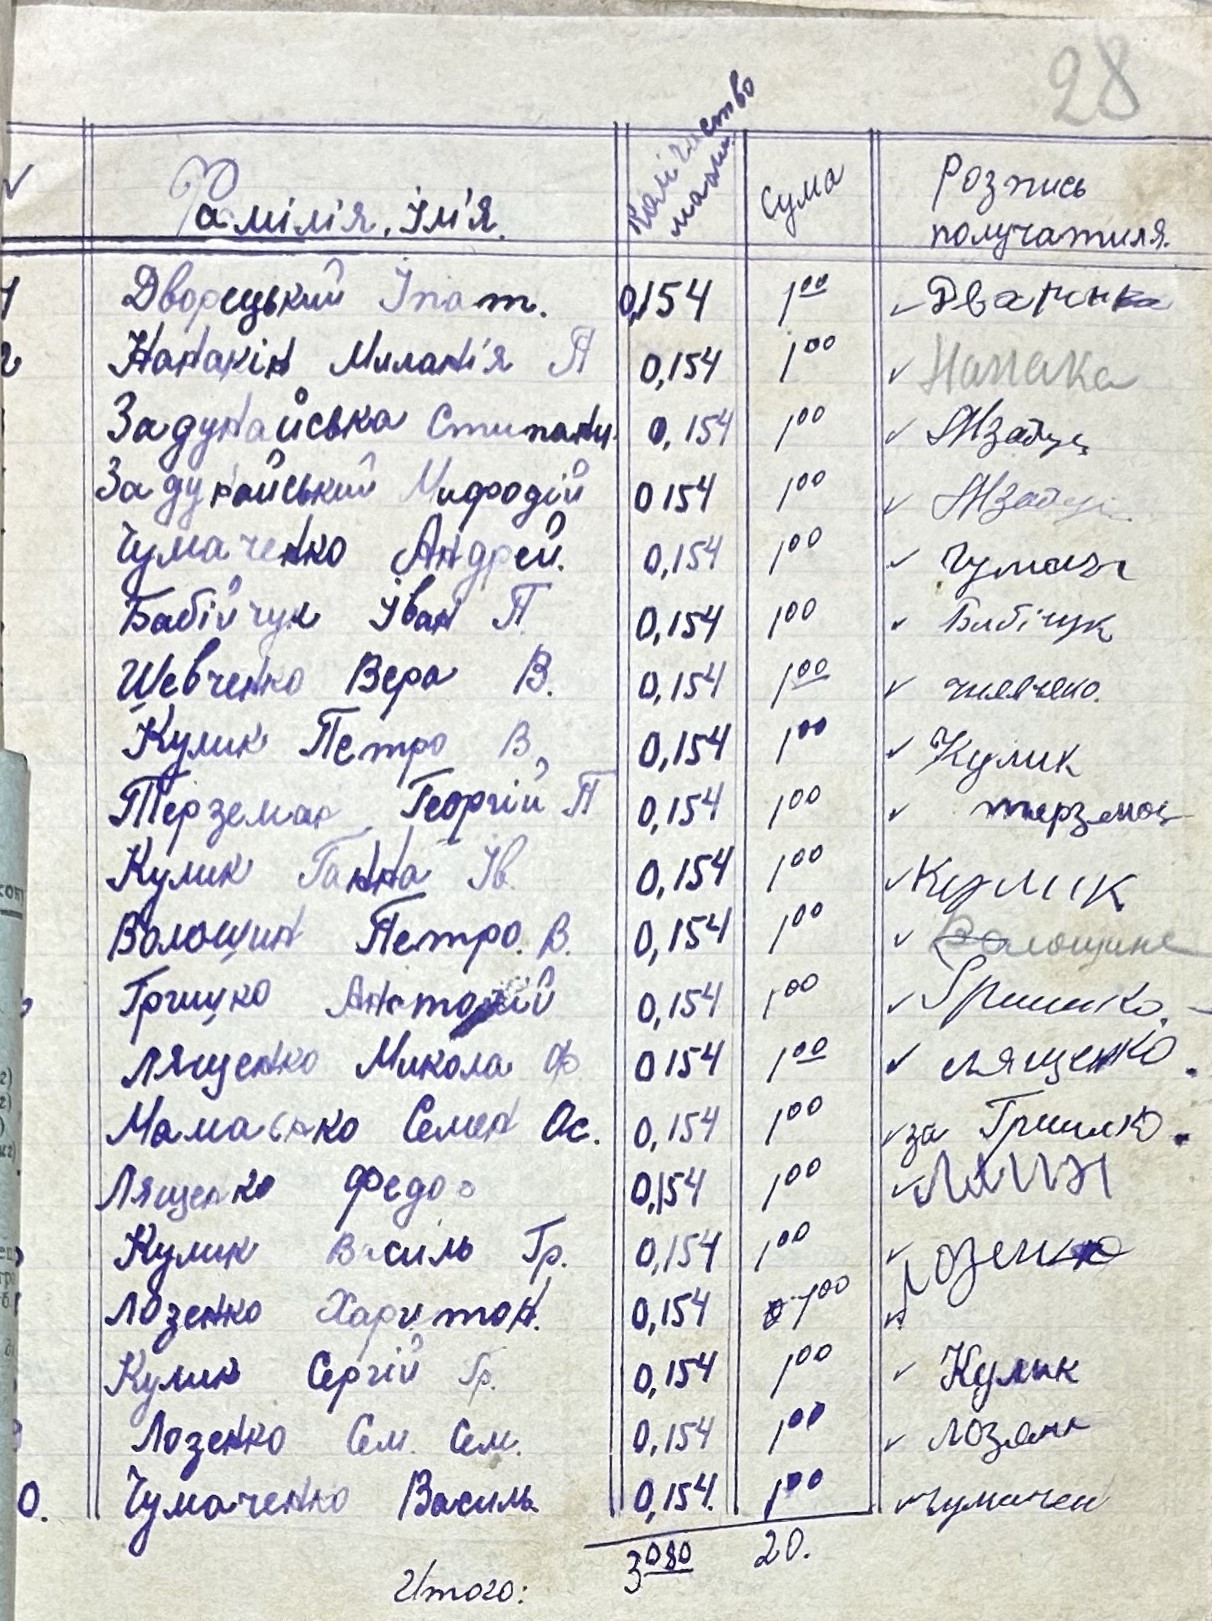 28
Фамілія, Ім'я. Колічество масла. Сума Розпись
получатиля.
Дворецький Іпат. 0,154 1 00 Дварчнка
Нанакін Миланія П 0,154 1 00 Нанака
Задунайська Стипани 0,154 1 00 Жзадун
Задунайський Мифодій 0 154 1 00 Жзадун
Чумаченко Андрей. 0,154 1 00 Чумачен
Бабійчук Іван П. 0,154 1 00 Бабічук
Шевченко Вера В. 0,154 1 00
Кулик Петро В. 0,154 1 00 Кулик
Терземан Георгій П 0,154 1 00 терземан
Кулик Ганна Ів. 0,154 1 00 Кулик
Волошин Петро. В. 0,154 1 00 Волошине
Грицко Анатолій 0,154 1 00 Гришко.
Лященко Микола Ф 0 154 1 00 лященко.
Мамасько Семен Ос. 0,154 1 00 за Гришко.
Лященко Федор 0,154 1 00
Кулик Василь Гр. 0,154 1 00
Лозенко Харитон. 0,154 1 00 Лозенко
Кулик Сергій Гр. 0,154 1 00 Кулик
Лозенко Сем. Сем. 0,154 1 00 лозенк
0. Чумаченко Василь 0,154. 1 00 чумачен
Итого: 3 080 20.